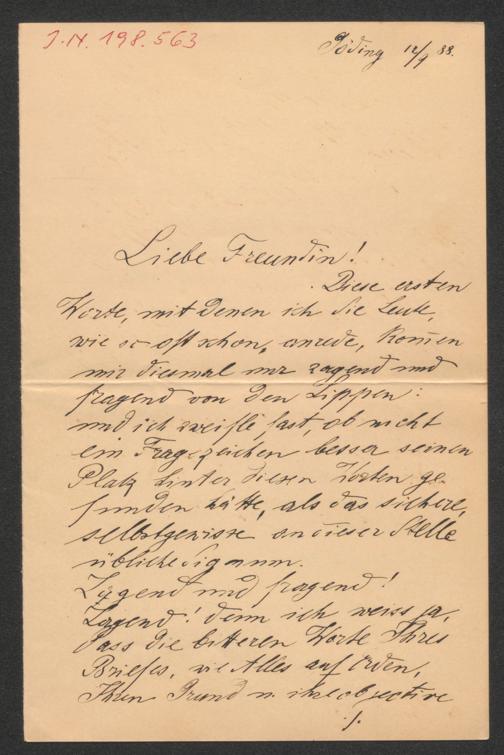 J.N. 198.563
Göding 12/9 88.
Liebe Freundin!
Diese ersten
Worte, mit denen ich Sie heute,
wie so oft schon, anrede, kom̄en
mir diesmal nur zagend und
fragend von den Lippen:
und ich zweifle fast, ob nicht
ein Fragezeichen besser seinen
Platz hinter diesen Worten ge-
funden hätte, als das sichere,
selbstgewisse an dieser Stelle
übliche Signum.
Zagend und fragend!
Zagend! denn ich weiss ja,
dass die bitteren Worte Ihres
Briefes, wie Alles auf Erden,
Ihren Grund u. ihre objective
./.